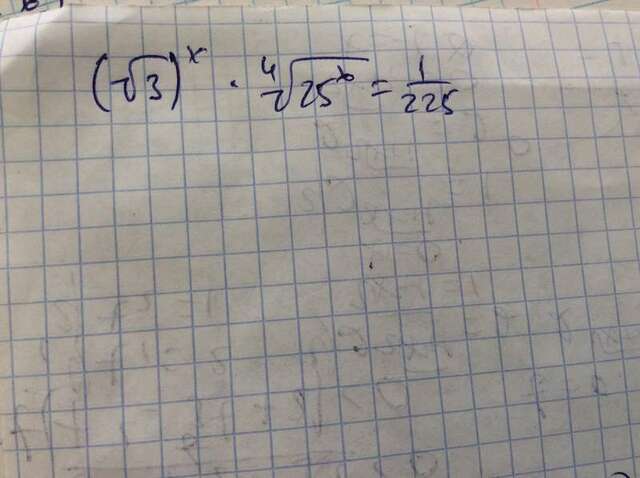 (√3)^x · ⁴√25^x = 1/225